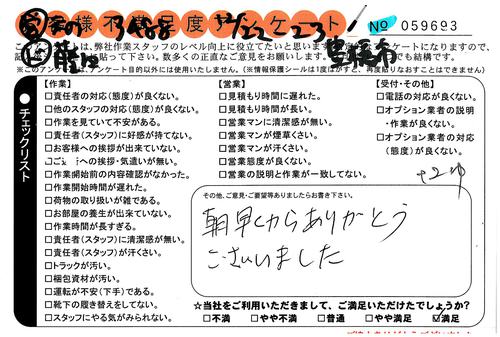 お客様不満足度アンケート
No 059693
このアンケートは、弊社作業スタッフのレベル向上に役立てたいと思います
※このアンケートは、アンケート目的以外には使用いたしません。(※情報保護シールは1度はがすと、再度貼りなおすことはできません)
チェックリスト
【作業】
□責任者の対応(態度)が良くない。
□他のスタッフの対応(態度)が良くない。
□作業を見ていて不安がある。
□責任者(スタッフ)に好感が持てない。
□お客様への挨拶が出来ていない。
への挨拶・気遣いが無い。
□作業開始前の内容確認がなかった。
□作業開始時間が遅れた。
□荷物の取り扱いが雑である。
□お部屋の養生が出来ていない。
□作業時間が長すぎる。
□責任者(スタッフ)に清潔感が無い。
□責任者(スタッフ)が汗くさい。
□トラックが汚い。
□梱包資材が汚い。
□運転が不安(下手)である。
□靴下の履き替えをしてない。
□スタッフにやる気がみられない。
【営業】
□見積もり時間に遅れた。
□見積もり時間が長い。
□営業マンに清潔感が無い。
□営業マンが煙草くさい。
□営業マンが汗くさい。
□営業態度が良くない。
□営業の説明と作業が一致してない。
【受付・その他】
□電話の対応が良くない。
□オプション業者の説明
・作業が良くない。
□オプション業者の対応
(態度)が良くない。
その他、ご意見・ご要望等ありましたらお書き下さい。
朝早くからありがとう
ございました
☆当社をご利用いただきまして、ご満足いただけたでしょうか?
□不満 □やや不満 □普通 □やや満足 ☑満足